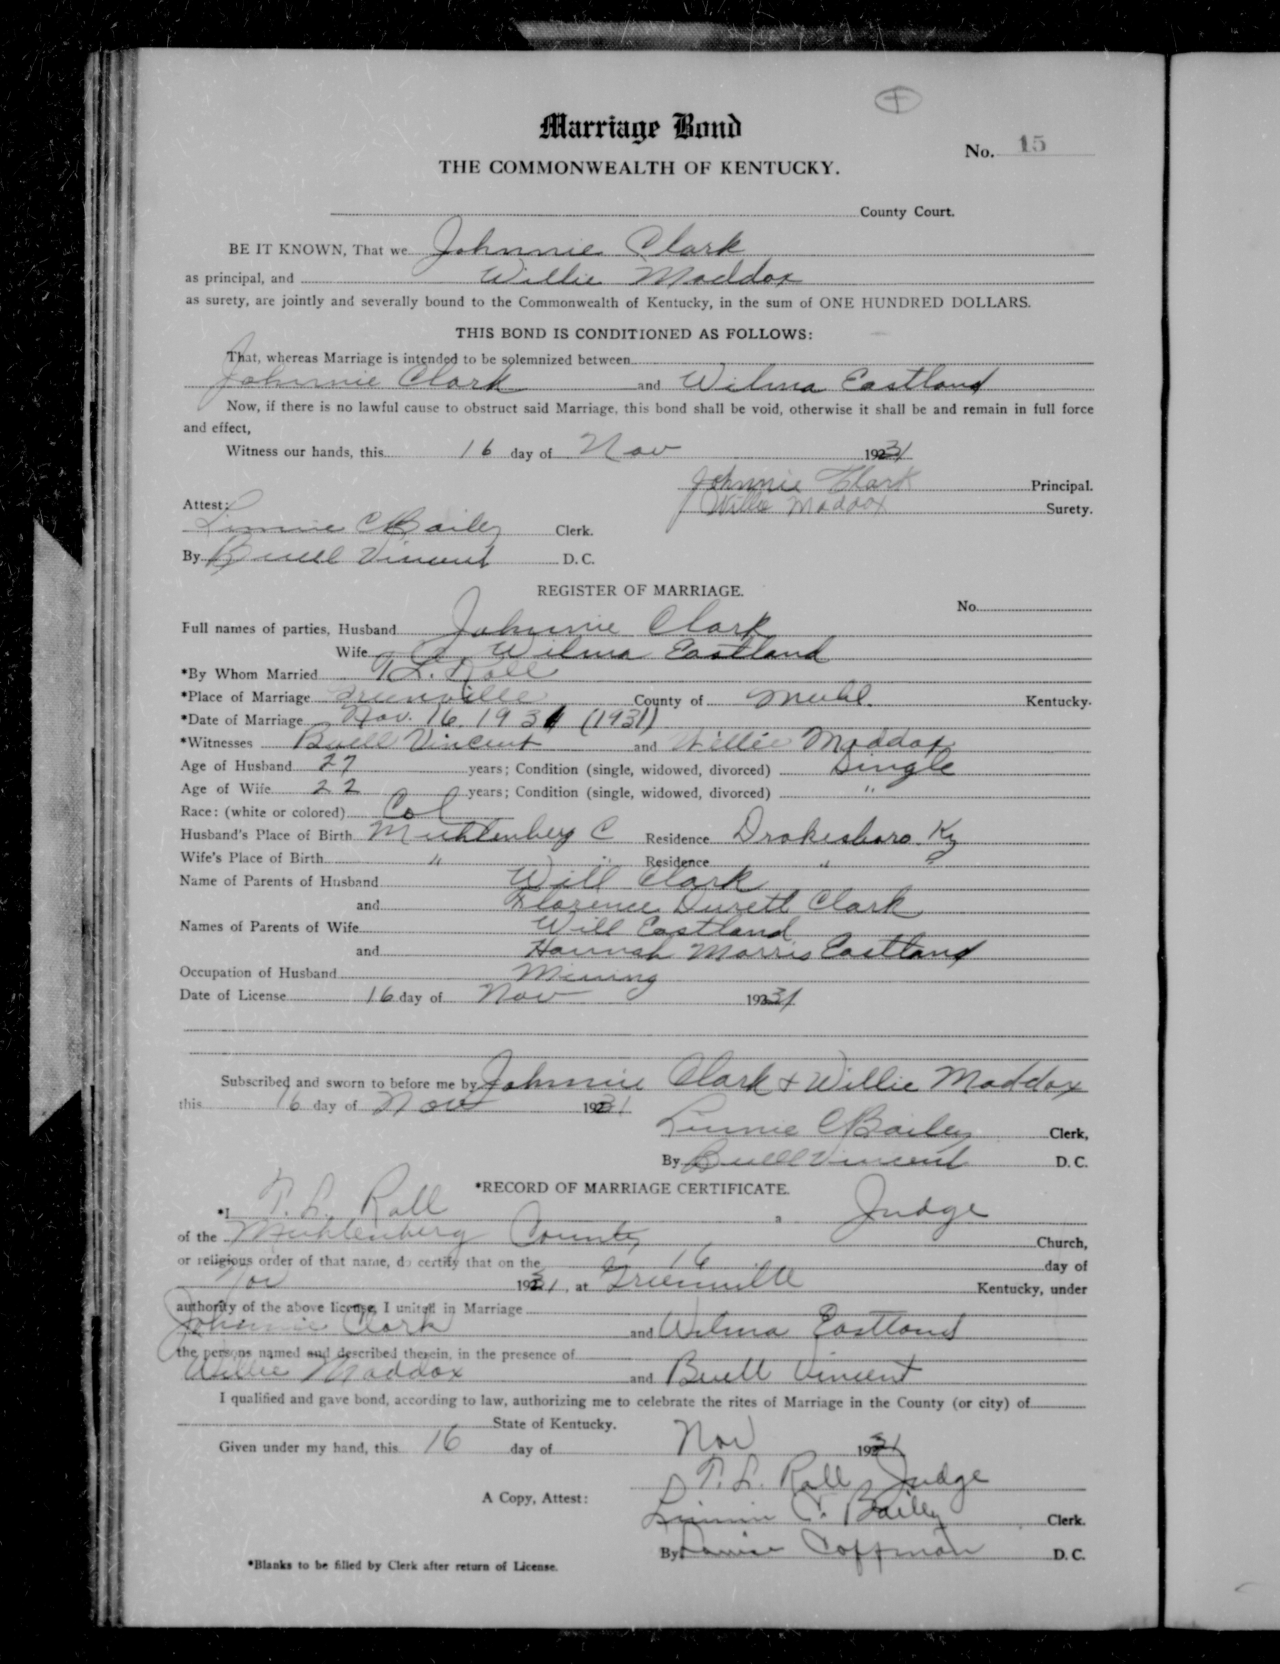 +
Marriage Bond
No. 15
THE COMMONWEALTH OF KENTUCKY.
County Court.
BE IT KNOWN, That we Johnnie Clark
as principal, and Willie Maddox
as surety, are jointly and severally bound to the Commonwealth of Kentucky, in the sum of ONE HUNDRED DOLLARS.
THIS BOND IS CONDITIONED AS FOLLOWS:
That, whereas Marriage is intended to be solemnized between
Johnnie Clark and Wilma Eastland
Now, if there is no lawful cause to obstruct said Marriage, this bond shall be void, otherwise it shall be and remain in full force
and effect,
Witness our hands, this 16 day of Nov 1931
Johnnie Clark Principal.
Attest: Willie Maddox Surety.
Linnie C Bailey Clerk.
By Buell Vincent D. C.
REGISTER OF MARRIAGE.
No.
Full names of parties, Husband Johnnie Clark
Wife Wilma Eastland
*By Whom Married T. L. Roll
*Place of Marriage Greenville County of Muhl. Kentucky.
*Date of Marriage Nov. 16, 1931 (1931)
*Witnesses Buell Vincent and Willie Maddox
Age of Husband 27 years; Condition (single, widowed, divorced) Single
Age of Wife 22 years; Condition (single, widowed, divorced) "
Race: (white or colored) Col
Husband's Place of Birth Muhlenberg C Residence Drakesboro Ky
Wife's Place of Birth " " Residence " "
Name of Parents of Husband Will Clark
and Florence Durett Clark
Names of Parents of Wife Will Eastland
and Hannah Morris Eastland
Occupation of Husband Mining
Date of License 16 day of Nov 1931
Subscribed and sworn to before me by Johnnie Clark & Willie Maddox
this 16 day of Nov 1931
Linnie C Bailey Clerk,
By Buell Vincent D. C.
*RECORD OF MARRIAGE CERTIFICATE.
*I T. L. Roll a Judge
of the Muhlenberg County Church,
or religious order of that name, do certify that on the 16 day of
Nov 1931, at Greenville Kentucky, under
authority of the above license, I united in Marriage
Johnnie Clark and Wilma Eastland
the persons named and described therein, in the presence of
Willie Maddox and Buell Vincent
I qualified and gave bond, according to law, authorizing me to celebrate the rites of Marriage in the County (or city) of
State of Kentucky.
Given under my hand, this 16 day of Nov 1931
T. L. Roll Judge
A Copy, Attest:
Linnie C. Bailey Clerk.
By Coffman D. C.
*Blanks to be filled by Clerk after return of License.